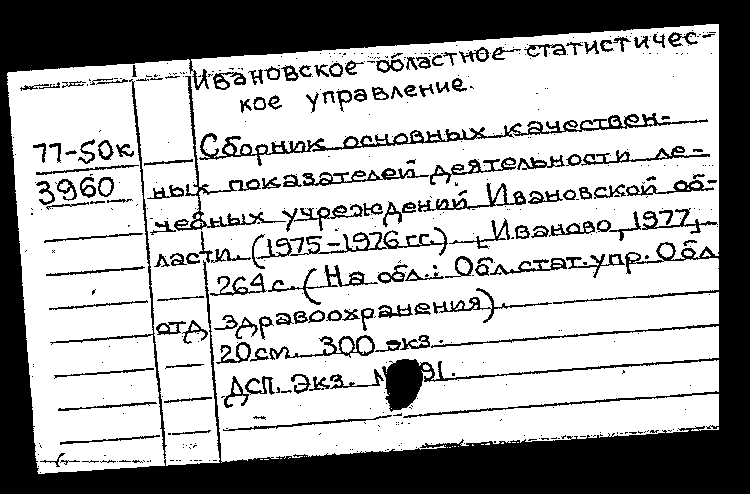 Ивановское областное статистичес-
кое управление.
77-50к
3960
Сборник основных качествен-
ных показателей деятельности ле-
чебных учреждений Ивановской об-
ласти. (1975-1976 гг.). [Иваново, 1977].
264 с. (На обл.: Обл. стат. упр. Обл.
отд здравоохранения).
20 см. 300 экз.
ДСП. Экз. 91.